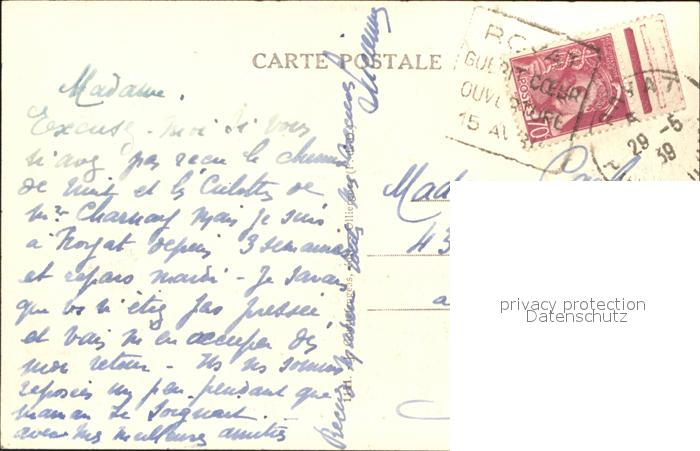 CARTE POSTALE
Madame.
Excusez-moi si vous
n'avez pas recu la chemise
de nuit et les Culottes de
Mr Charnay mais je suis
à Royat depuis 3 semaines
et repars mardi - Je savais
que vs n'étiez pas pressée
et vais m'en occuper dès
mon retour - Ns ns sommes
reposées un peu pendant que
maman se soignait.
avec mes meilleures amitiés
Recevez
ROYAT
GUERIT CŒUR
OUVERTURE
15 AV
POSTES
70
ROYAT
29-5
39
Mad
43
a
privacy protection
Datenschutz